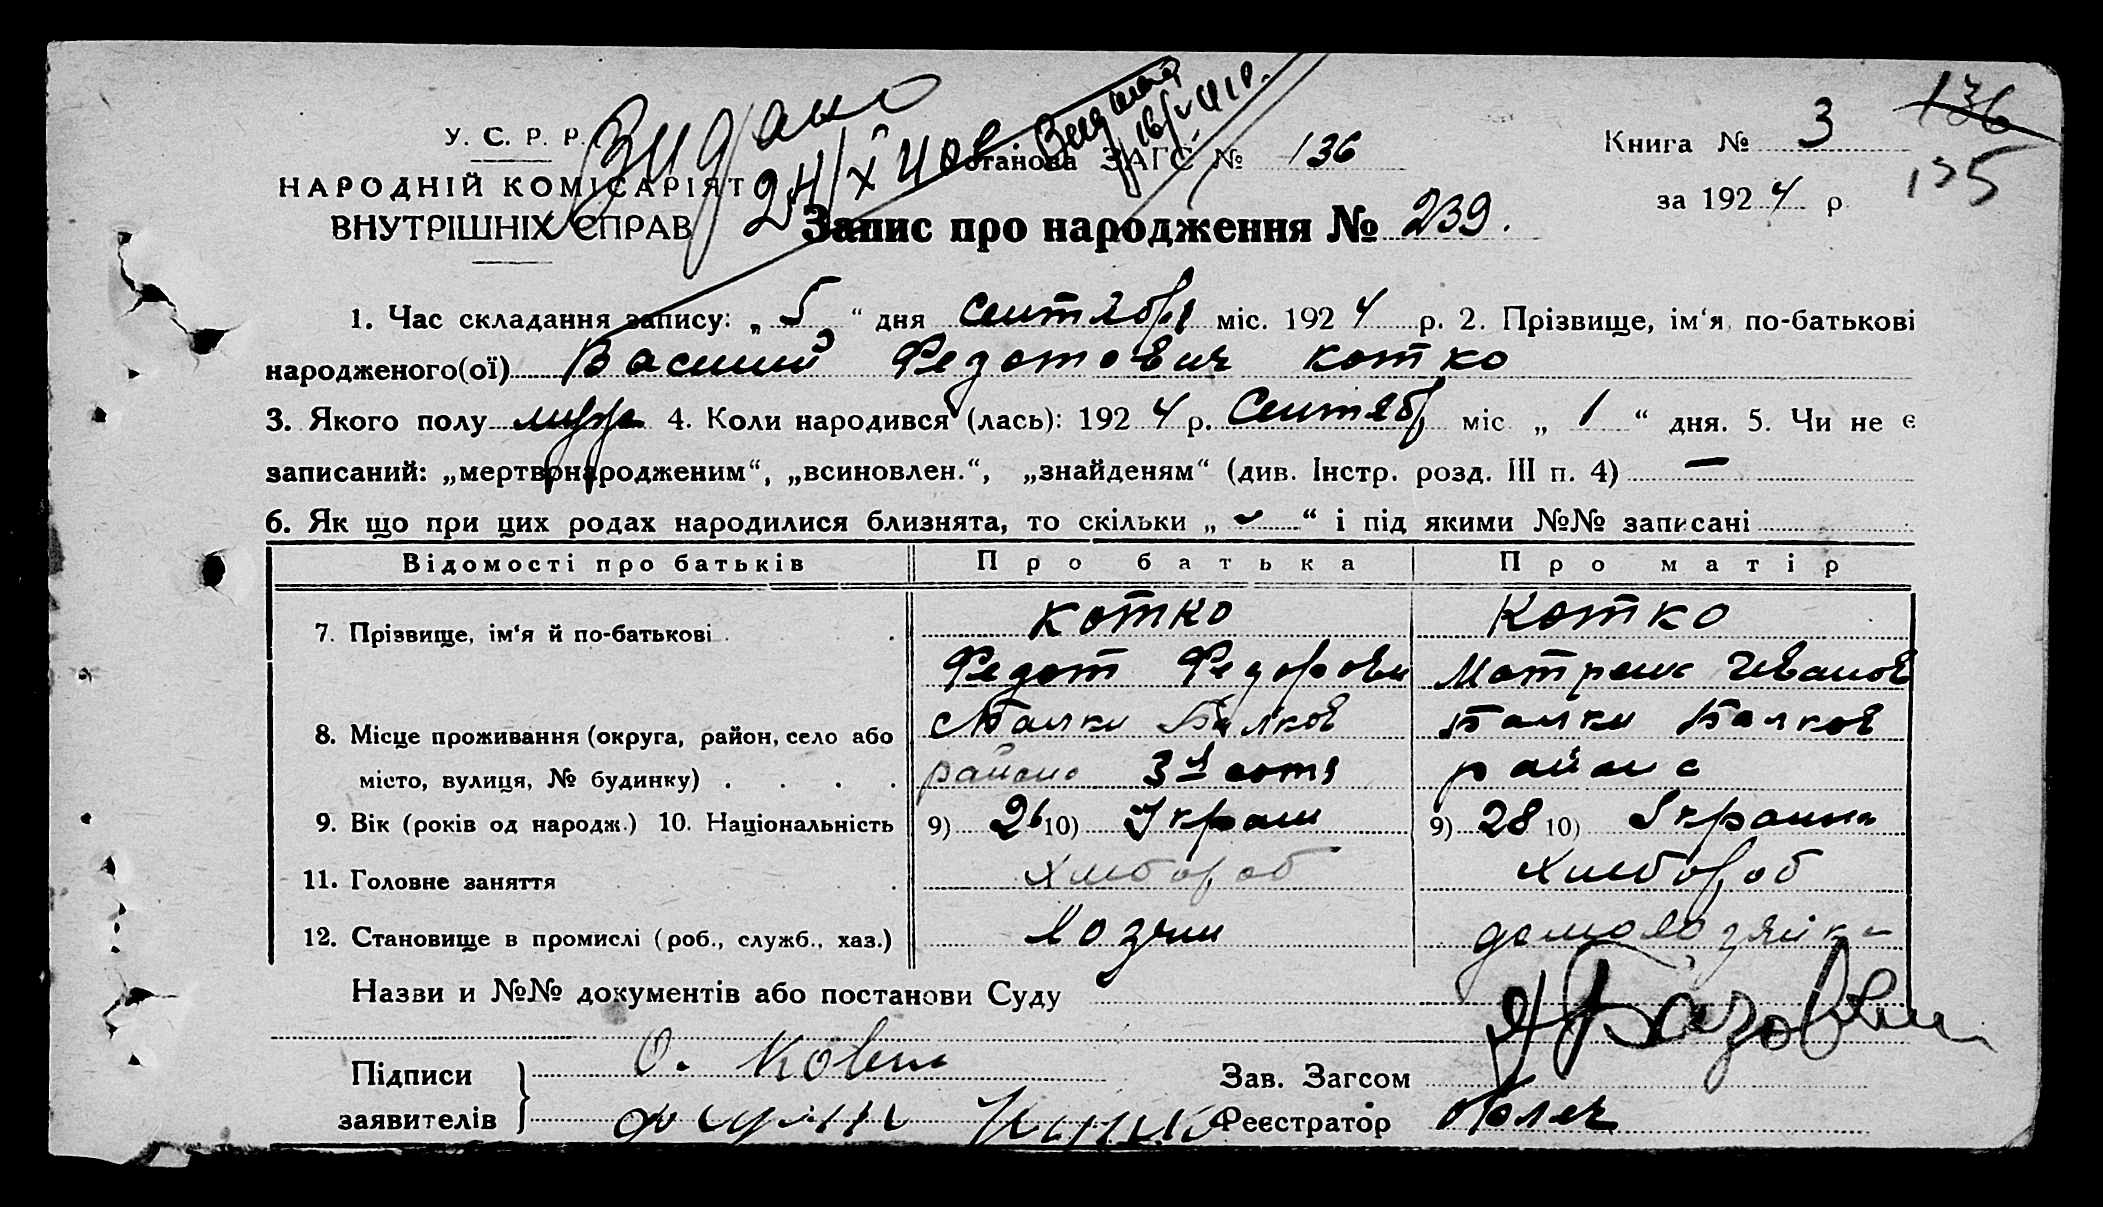 У. С. Р. Р.
НАРОДНІЙ КОМІСАРІЯТ
ВНУТРІШНІХ СПРАВ
Видано
24/X 40
Видано
16/V 41 р.
Установа ЗАГС № 136
Книга № 3
136
135
за 1924 р
Запис про народження № 239.
1. Час складання запису: „ 5 “ дня Сентября міс. 1924 р. 2. Прізвище, ім‘я, по-батькові
народженого(ої) Василий Федотович Котко
3. Якого полу муж 4. Коли народився (лась): 1924 р. Сентяб міс „ 1 “ дня. 5. Чи не є
записаний: „мертвонародженим“, „всиновлен.“, „знайденям“ (див. Інстр. розд. III п. 4) —
6. Як що при цих родах народилися близнята, то скільки „ “ і під якими №№ записані
Відомості про батьків Про батька Про матір
7. Прізвище, ім‘я й по-батькові Котко Котко
Федот Федорови Матрена Иванов
8. Місце проживання (округа, район, село або Балки Балков Балки Балков
місто, вулиця, № будинку) района 3я сотня района
9. Вік (років од народж.) 10. Національність 9) 26 10) Украин 9) 28 10) Украинка
11. Головне заняття Хлебороб Хлебороб
12. Становище в промислі (роб., служб., хаз.) Хозяин домохозяйка
Назви и №№ документів або постанови Суду
Підписи
заявителів
О.
Зав. Загсом
Реєстратор